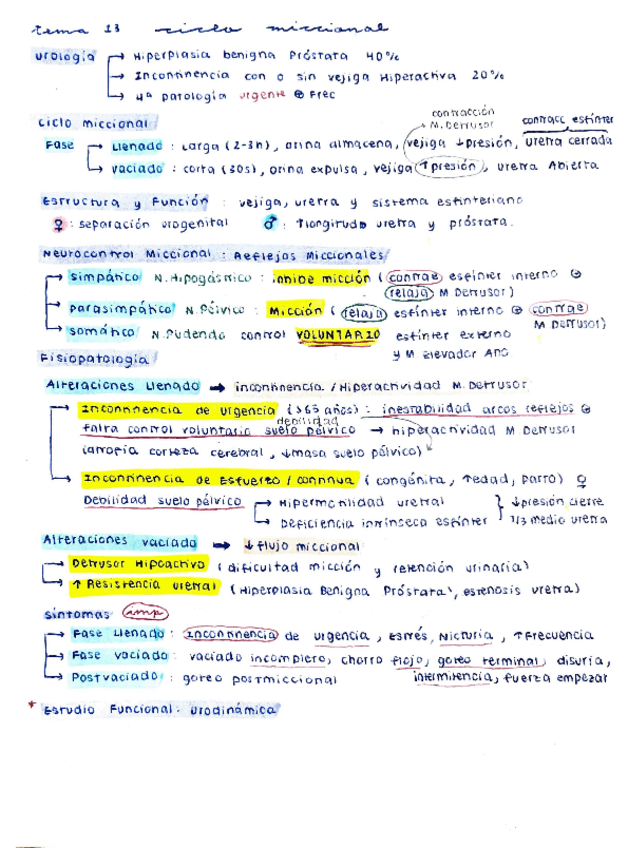 tema 13 ciclo miccional
urología → Hiperplasia benigna Próstata 40%
→ Incontinencia con o sin vejiga Hiperactiva 20%
→ 4ª patología urgente ⊕ Frec
contracción
M. Detrusor
contracc esfínter
ciclo miccional
Fase → Llenado: larga (2-3h), orina almacena, vejiga ↓presión, uretra cerrada
→ vaciado: corta (30s), orina expulsa, vejiga ↑presión, uretra Abierta
Estructura y Función: vejiga, uretra y sistema esfinteriano
♀: separación urogenital ♂: ↑longitud uretra y próstata.
Neurocontrol Miccional: Reflejos Miccionales
→ simpático N. Hipogástrico: inhibe micción (contrae esfínter interno ⊕
relaja M Detrusor)
→ parasimpático N. Pélvico: Micción (relaja esfínter interno ⊕ contrae
M Detrusor)
→ somático N. Pudendo control VOLUNTARIO esfínter externo
y M elevador Ano
Fisiopatología
Alteraciones Llenado → incontinencia / Hiperactividad M. Detrusor
→ Incontinencia de urgencia (>65 años): inestabilidad arcos reflejos ⊕
debilidad
falta control voluntario suelo pélvico → hiperactividad M Detrusor
(atrofia corteza cerebral, ↓masa suelo pélvico)
→ Incontinencia de Esfuerzo / continua (congénita, ↑edad, parto) ♀
Debilidad suelo pélvico → Hipermotilidad uretral } ↓presión cierre
→ Deficiencia intrínseca esfínter 1/3 medio uretra
Alteraciones vaciado → ↓ flujo miccional
→ Detrusor Hipoactivo (dificultad micción y retención urinaria)
→ ↑ Resistencia uretral (Hiperplasia Benigna Próstata, estenosis uretra)
síntomas
→ Fase Llenado: Incontinencia de urgencia, estrés, Nicturia, ↑Frecuencia
→ Fase vaciado: vaciado incompleto, chorro flojo, goteo terminal, disuria,
intermitencia, fuerza empezar
→ Postvaciado: goteo postmiccional
* Estudio Funcional: urodinámica